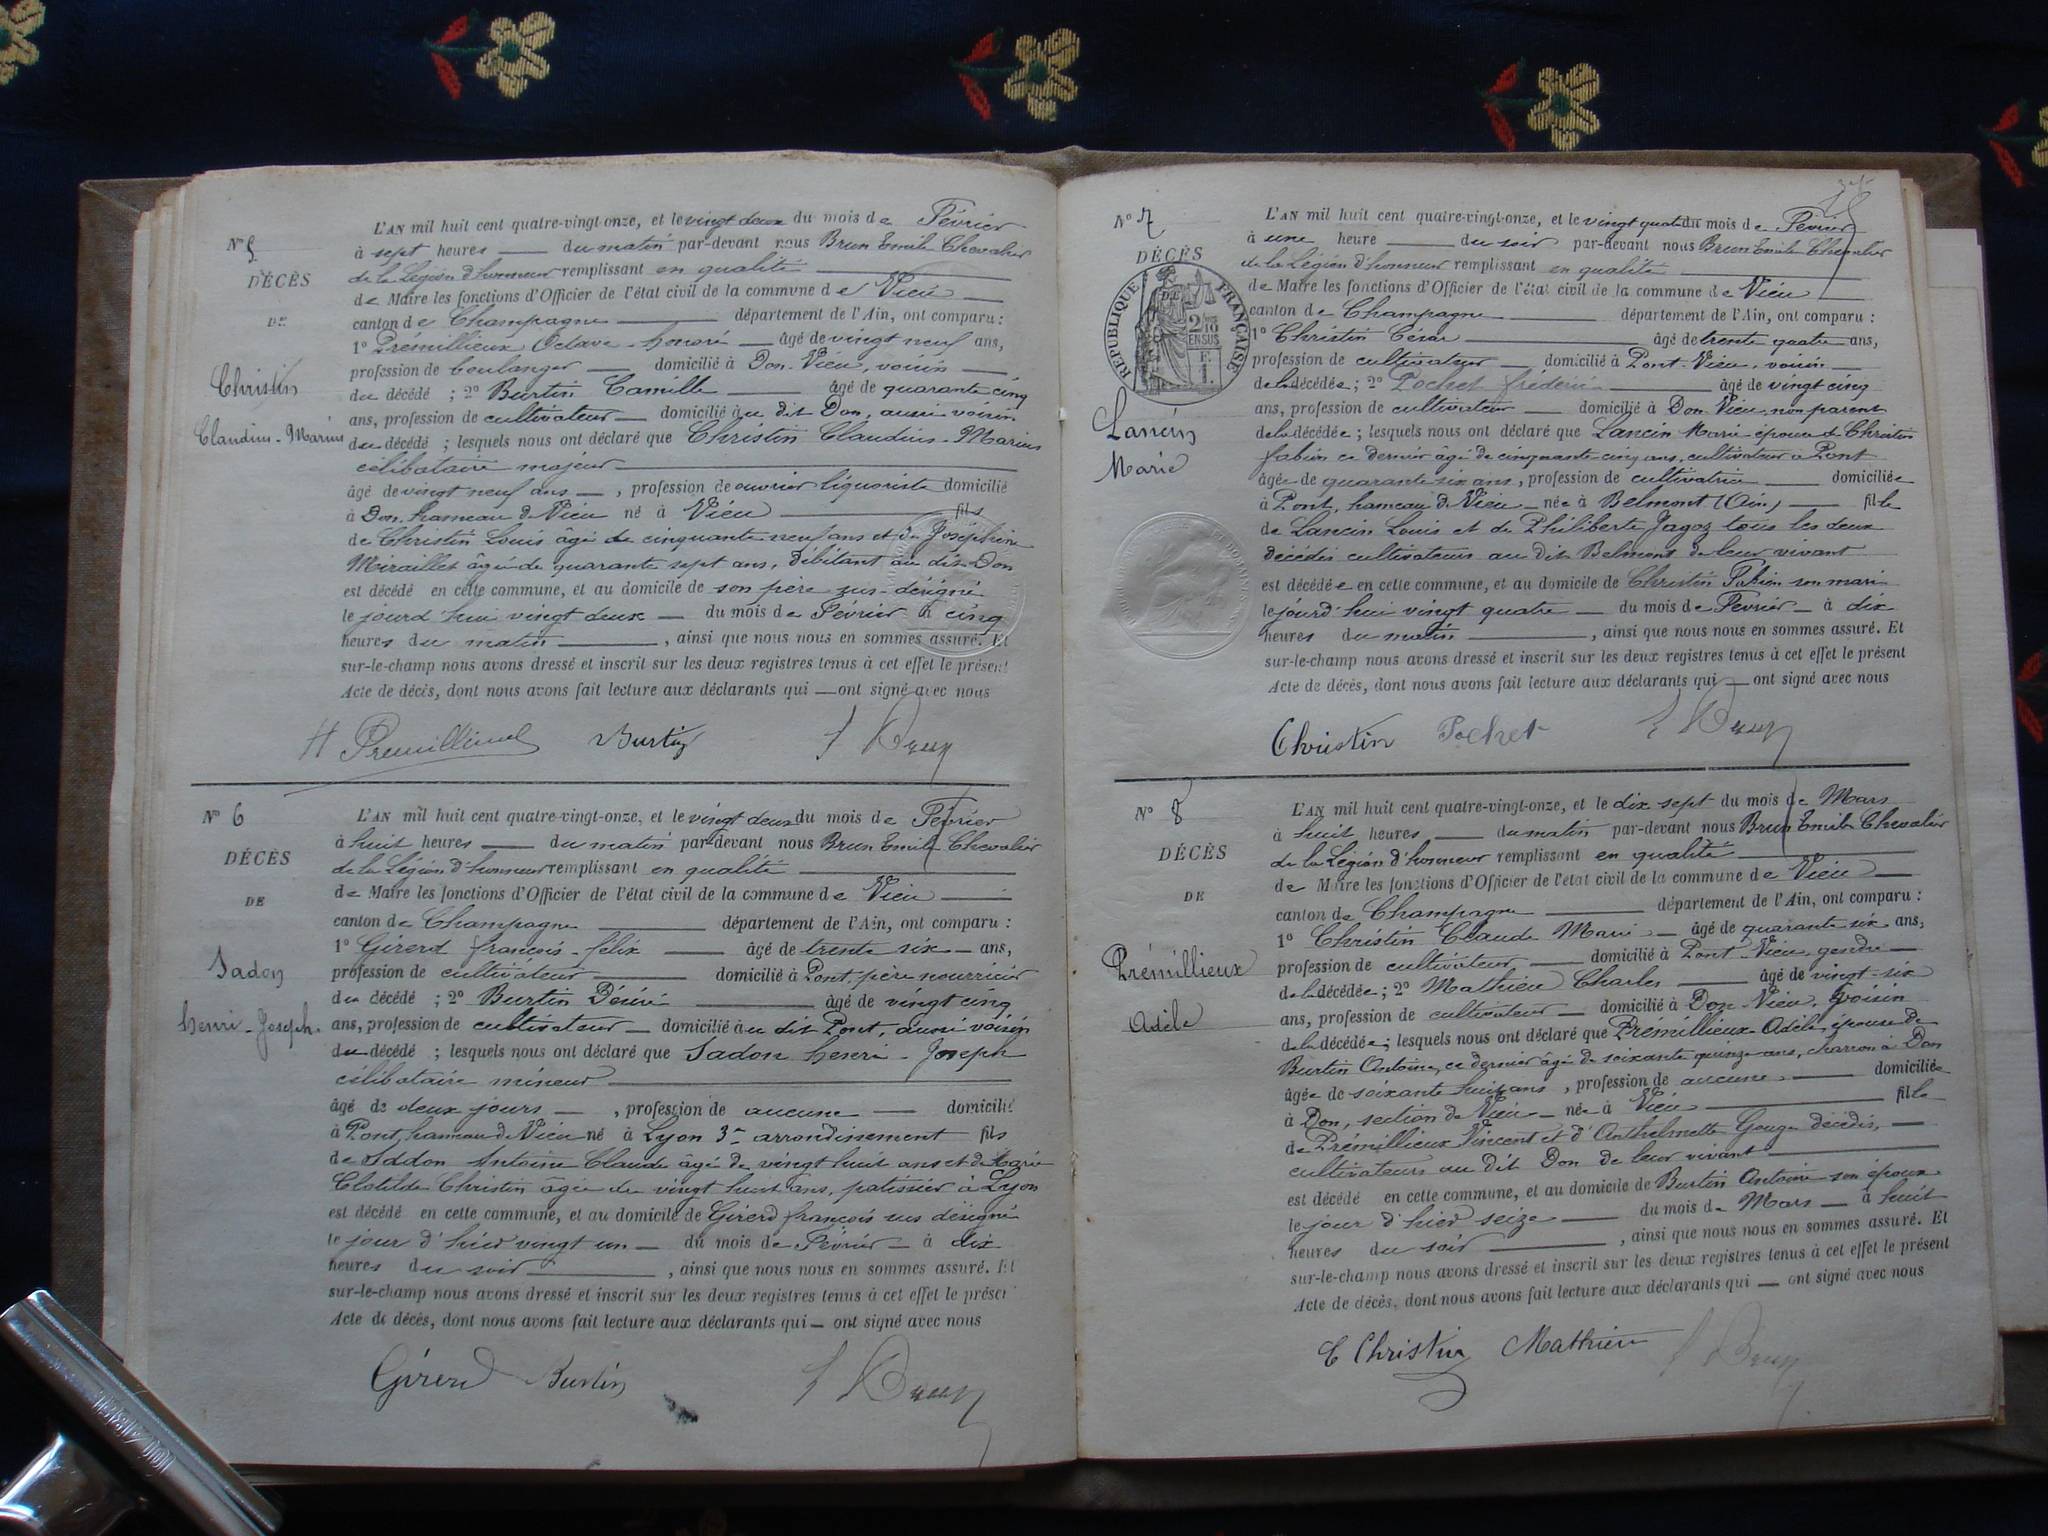 N° 5
DÉCÈS
DE
Christin
Claudius-Marius
L'AN mil huit cent quatre-vingt-onze, et le vingt deux du mois de Février
à sept heures du matin par-devant nous Brun Emile Chevalier
de la Légion d'honneur remplissant en qualité
de Maire les fonctions d'Officier de l'état civil de la commune de Vieu
canton de Champagne département de l'Ain, ont comparu :
1° Prémillieux Octave-honoré âgé de vingt neuf ans,
profession de boulanger domicilié à Don-Vieu, voisin
du décédé ; 2° Burtin Camille âgé de quarante cinq
ans, profession de cultivateur domicilié au dit Don, aussi voisin
du décédé ; lesquels nous ont déclaré que Christin Claudius-Marius
célibataire majeur
âgé de vingt neuf ans, profession de ouvrier liquoriste domicilié
à Don, hameau de Vieu né à Vieu fils
de Christin Louis âgé de cinquante neuf ans et de Joséphine
Miraillet âgée de quarante sept ans, débitant au dit Don
est décédé en cette commune, et au domicile de son père sus-désigné
le jourd'hui vingt deux du mois de Février à cinq
heures du matin, ainsi que nous nous en sommes assuré. Et
sur-le-champ nous avons dressé et inscrit sur les deux registres tenus à cet effet le présent
Acte de décès, dont nous avons fait lecture aux déclarants qui — ont signé avec nous
H Premillieux Burtin E Brun
N° 6
DÉCÈS
DE
Sadon
henri-Joseph
L'AN mil huit cent quatre-vingt-onze, et le vingt deux du mois de Février
à huit heures du matin par-devant nous Brun Emile Chevalier
de la Légion d'honneur remplissant en qualité
de Maire les fonctions d'Officier de l'état civil de la commune de Vieu
canton de Champagne département de l'Ain, ont comparu :
1° Girerd françois-félix âgé de trente six ans,
profession de cultivateur domicilié à Pont, père nourricier
du décédé ; 2° Burtin Désiré âgé de vingt cinq
ans, profession de cultivateur domicilié au dit Pont, aussi voisin
du décédé ; lesquels nous ont déclaré que Sadon henri-Joseph
célibataire mineur
âgé de deux jours, profession de aucune domicilié
à Pont, hameau de Vieu né à Lyon 3e arrondissement fils
de Saddon Antoine Claude âgé de vingt huit ans et de Marie
Clotilde Christin âgée de vingt huit ans, patissier à Lyon
est décédé en cette commune, et au domicile de Girerd françois sus désigné
le jour d'hier vingt un du mois de Février à dix
heures du soir, ainsi que nous nous en sommes assuré. Et
sur-le-champ nous avons dressé et inscrit sur les deux registres tenus à cet effet le présent
Acte de décès, dont nous avons fait lecture aux déclarants qui — ont signé avec nous
Girerd Burtin E Brun
N° 7
DÉCÈS
DE
REPUBLIQUE FRANÇAISE
2/10 EN SUS
1 F.
Lancin
Marie
L'AN mil huit cent quatre-vingt-onze, et le vingt quatre du mois de Février
à une heure du soir par-devant nous Brun Emile Chevalier
de la Légion d'honneur remplissant en qualité
de Maire les fonctions d'Officier de l'état civil de la commune de Vieu
canton de Champagne département de l'Ain, ont comparu :
1° Christin César âgé de trente quatre ans,
profession de cultivateur domicilié à Pont-Vieu, voisin
de la décédée ; 2° Pochet fréderic âgé de vingt cinq
ans, profession de cultivateur domicilié à Don-Vieu, non parent
de la décédée ; lesquels nous ont déclaré que Lancin Marie épouse de Christin
fabien ce dernier âgé de cinquante cinq ans, cultivateur à Pont
âgée de quarante six ans, profession de cultivatrice domiciliée
à Pont, hameau de Vieu née à Belmont (Ain) fille
de Lancin Louis et de Philiberte Jagoz tous les deux
décédés cultivateurs au dit Belmont de leur vivant
est décédée en cette commune, et au domicile de Christin Fabien son mari
le jourd'hui vingt quatre du mois de Février à dix
heures du matin, ainsi que nous nous en sommes assuré. Et
sur-le-champ nous avons dressé et inscrit sur les deux registres tenus à cet effet le présent
Acte de décès, dont nous avons fait lecture aux déclarants qui — ont signé avec nous
Christin Pochet E Brun
N° 8
DÉCÈS
DE
Prémillieux
Adèle
L'AN mil huit cent quatre-vingt-onze, et le dix sept du mois de Mars
à huit heures du matin par-devant nous Brun Emile Chevalier
de la Légion d'honneur remplissant en qualité
de Maire les fonctions d'Officier de l'état civil de la commune de Vieu
canton de Champagne département de l'Ain, ont comparu :
1° Christin Claude Marie âgé de quarante six ans,
profession de cultivateur domicilié à Pont-Vieu, gendre
de la décédée ; 2° Mathieu Charles âgé de vingt-six
ans, profession de cultivateur domicilié à Don-Vieu, voisin
de la décédée ; lesquels nous ont déclaré que Prémillieux Adèle, épouse de
Burtin Antoine, ce dernier âgé de soixante quinze ans, charron à Don
âgée de soixante huit ans, profession de aucune domiciliée
à Don, section de Vieu née à Vieu fille
de Prémillieux Vincent et d'Anthelmette Gouge décédés,
cultivateurs au dit Don de leur vivant
est décédé en cette commune, et au domicile de Burtin Antoine son époux
le jour d'hier seize du mois de Mars à huit
heures du soir, ainsi que nous nous en sommes assuré. Et
sur-le-champ nous avons dressé et inscrit sur les deux registres tenus à cet effet le présent
Acte de décès, dont nous avons fait lecture aux déclarants qui — ont signé avec nous
C Christin Mathieu E Brun